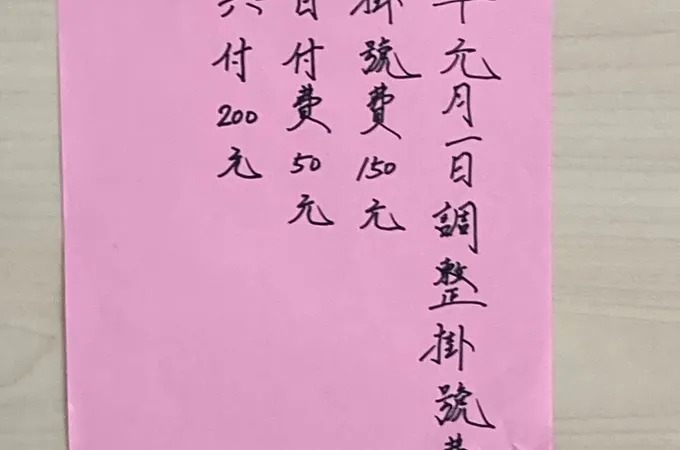 年元月一日調整掛號費
掛號費150元
自付費50元
共付200元